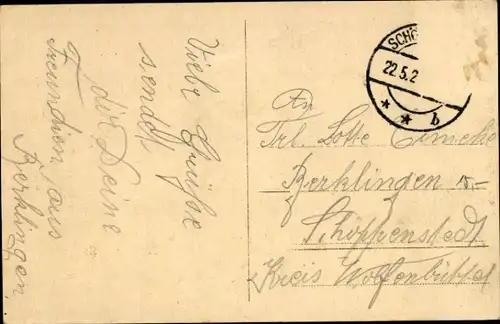 Viele Grüße
sendet
dir Deine
Freundien aus
Berklingen,
SCHÖ
22.5.2
* * b
An
Frl. Lotte
Berklingen
Schöppenstedt
Kreis Wolfenbüttel